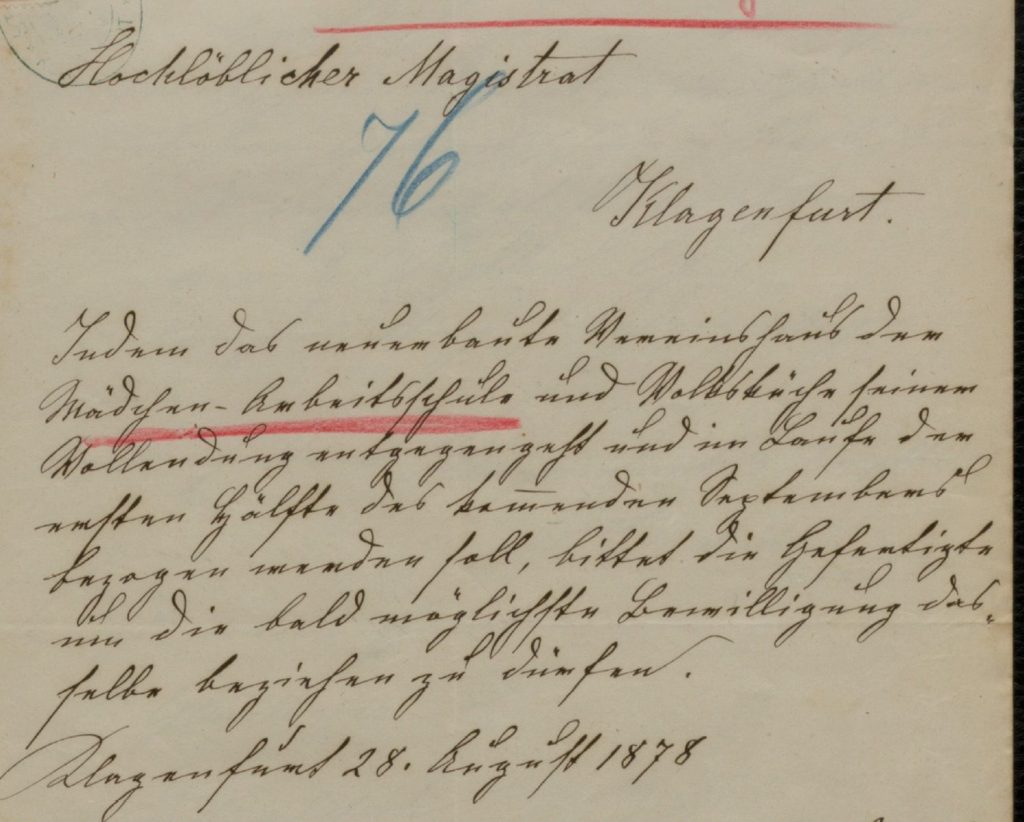 Hochlöblicher Magistrat
76
Klagenfurt.
Indem das neuerbaute Vereinshaus der
Mädchen-Arbeitsschule und Volksküche seiner
Vollendung entgegengeht und im Laufe der
ersten Hälfte des kom̅enden Septembers
bezogen werden soll, bittet die Gefertigte
um die bald möglichste Bewilligung das-
selbe beziehen zu dürfen.
Klagenfurt 28. August 1878